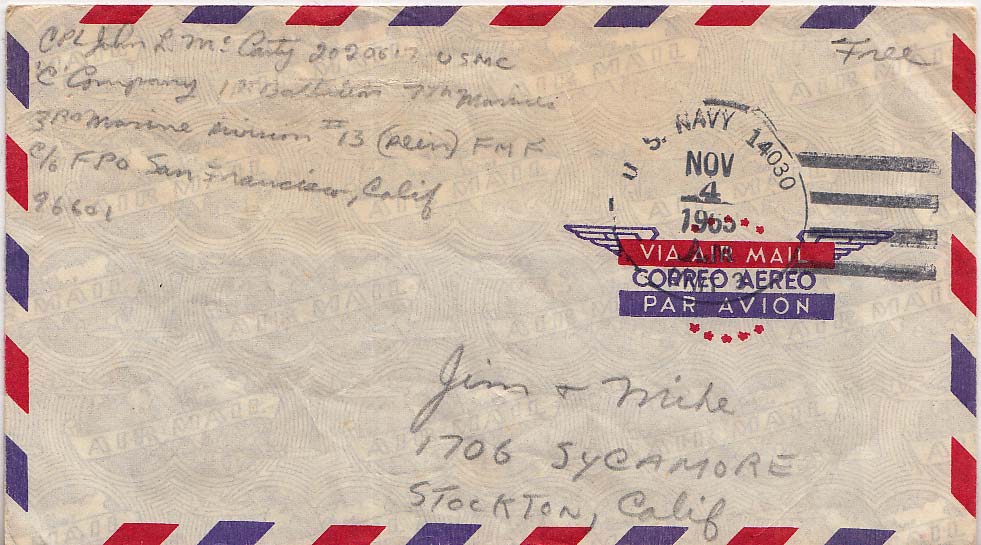 CPL John L. McCarty 2020617 USMC
'C' Company 1st Battalion 7th Marines
3RD Marine Division #13 (Rein) FMF
c/o FPO San Francisco, Calif
96601
Free
U S NAVY 14030
NOV
4
1965
AIR
VIA AIR MAIL
CORREO AEREO
PAR AVION
Jim & Mike
1706 SYCAMORE
STOCKTON, Calif